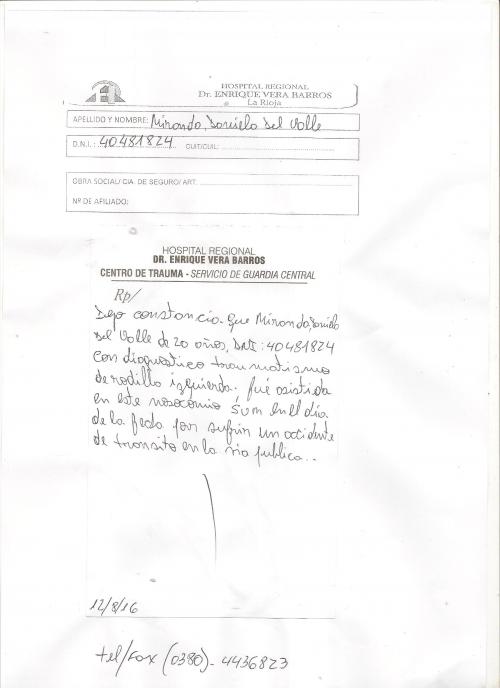 HOSPITAL REGIONAL
Dr. ENRIQUE VERA BARROS
La Rioja
APELLIDO Y NOMBRE: Miranda, Daniela Del Valle
D.N.I.: 40481824 CUIT/CUIL:
OBRA SOCIAL/ CIA. DE SEGURO/ ART.
Nº DE AFILIADO:
HOSPITAL REGIONAL
DR. ENRIQUE VERA BARROS
CENTRO DE TRAUMA - SERVICIO DE GUARDIA CENTRAL
Rp/
Dejo constancia que Miranda, Daniela
Del Valle de 20 años, DNI: 40481824
con diagnostico traumatismo
de rodilla izquierda. fué asistida
en este nosocomio en el día
de la fecha por sufrir un accidente
de transito en la via publica..
12/8/16
tel/Fax (0380)- 4436823